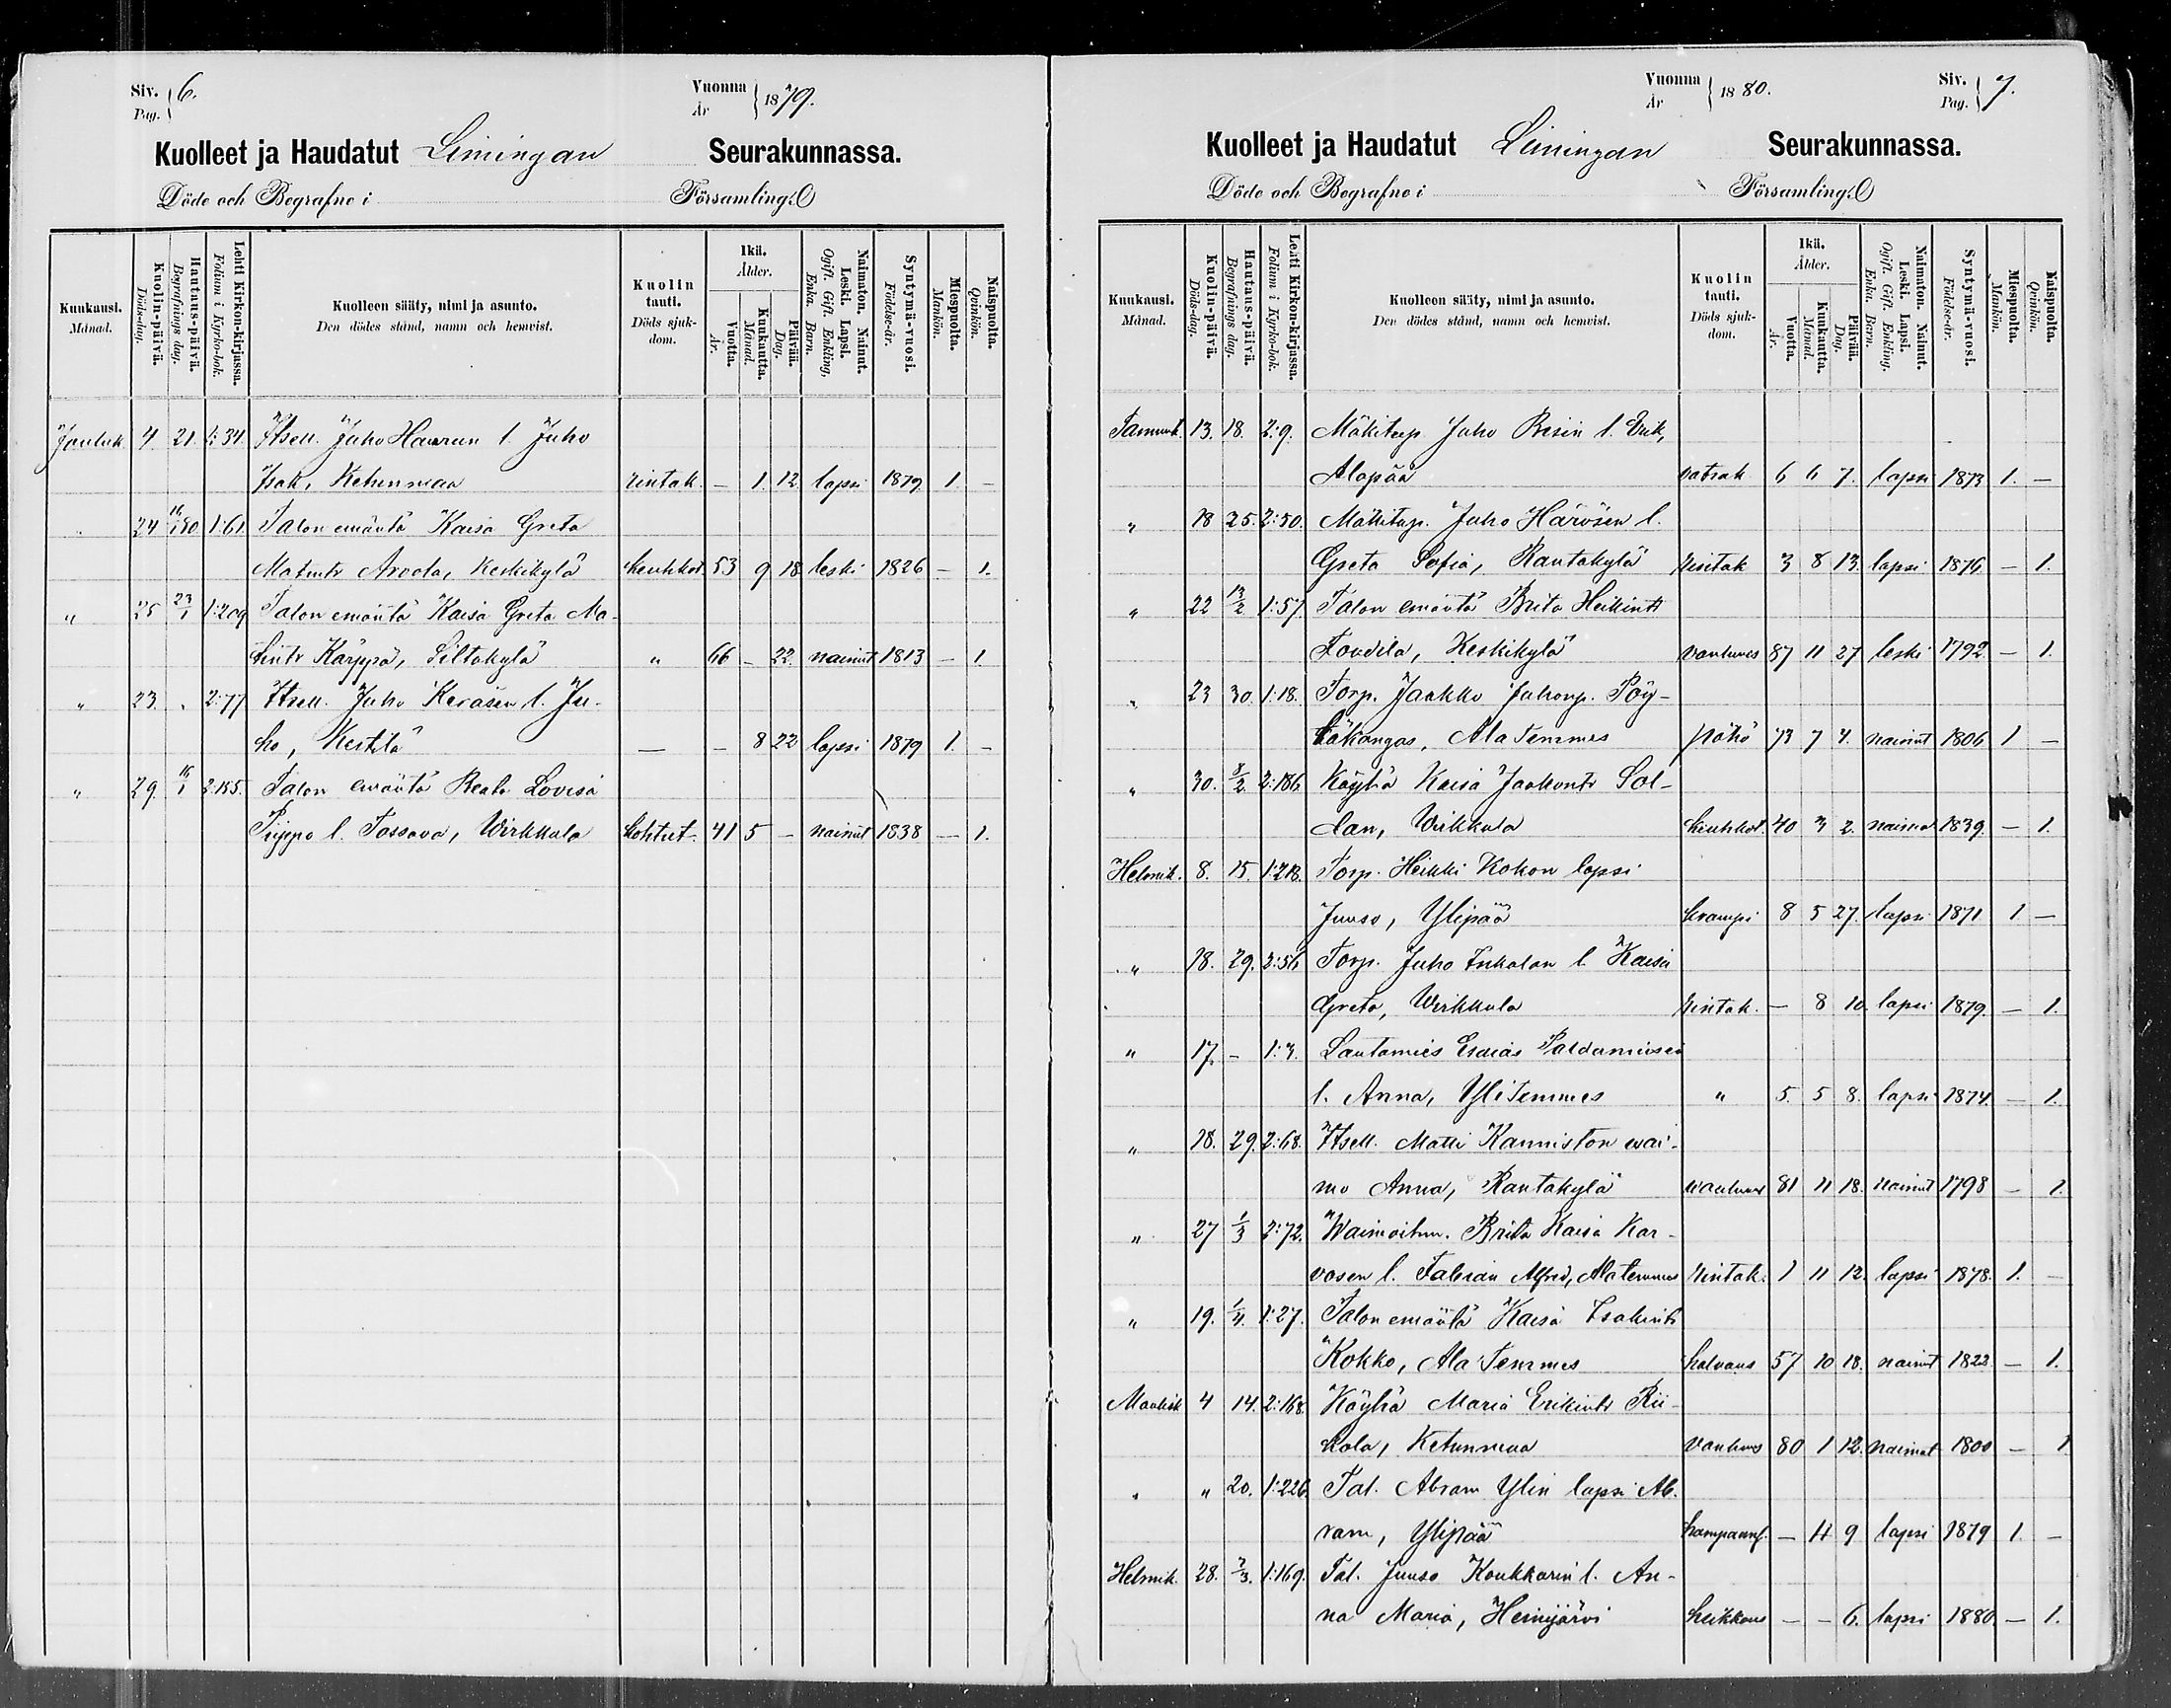 Siv. 6.
Pag.
Vuonna 1879.
År
Kuolleet ja Haudatut Limingan Seurakunnassa.
Döde och Begrafne i Församling.
Kuukausi. Månad.
Kuolin-päivä. Döds-dag.
Hautaus-päivä. Begrafnings dag.
Lehti Kirkon-kirjassa. Folium i Kyrko-bok.
Kuolleen sääty, nimi ja asunto.
Den dödes stånd, namn och hemvist.
Kuolin tauti. Döds sjukdom.
Ikä. Ålder.
Vuotta. År.
Kuukautta. Månad.
Päivää. Dag.
Naimaton. Nainut. Leski. Lapsi.
Ogift. Gift. Enkling, Enka. Barn.
Syntymä-vuosi. Födelse-år.
Miespuolta. Mankön.
Naispuolta. Qvinkön.
Jouluk. 4. 21. 1:34. Itsell. Juho Haurun l. Juho
Isak, Ketunmaa rintak. — 1. 12 lapsi 1879 1. —
24 1:61. Talon emäntä Kaisa Greta
Matintr Arvola, Keskikylä keuhkot. 53 9 18 leski 1826 — 1.
" 25 23/1 1:209 Talon emäntä Kaisa Greta Ma-
tintr Kärppä, Siltakylä " 66 — 22. nainut 1813 — 1.
" 23. " 2:77 Itsell. Juho Keräsen l. Ju-
ho, Kestilä — — 8 22 lapsi 1879 1. —
" 29. 16/1 2:185. Talon emäntä Beata Lovisa
Piippo l. Tossava, Wirkkula kohtut. 41 5 — nainut 1838 — 1.
Vuonna 1880.
År
Siv. 7.
Pag.
Kuolleet ja Haudatut Limingan Seurakunnassa.
Döde och Begrafne i Församling.
Kuukausi. Månad.
Kuolin-päivä. Döds-dag.
Hautaus-päivä. Begrafnings dag.
Lehti Kirkon-kirjassa. Folium i Kyrko-bok.
Kuolleen sääty, nimi ja asunto.
Den dödes stånd, namn och hemvist.
Kuolin tauti. Döds sjukdom.
Ikä. Ålder.
Vuotta. År.
Kuukautta. Månad.
Päivää. Dag.
Naimaton. Nainut. Leski. Lapsi.
Ogift. Gift. Enkling, Enka. Barn.
Syntymä-vuosi. Födelse-år.
Miespuolta. Mankön.
Naispuolta. Qvinkön.
Tammik. 13. 18. 2:9. Mäkitup. Juho l. Erik,
Alapää vatsak 6 6 7. lapsi 1873 1. —
" 18 25. 2:50. Mäkitup. Juho Härösen l.
Greta Sofia, Rantakylä rintak 3 8 13. lapsi 1876 — 1.
" 22 13/2 1:57. Talon emäntä Brita Heikintr
Tovila, Keskikylä vanhuus 87 11 27 leski 1792 — 1.
" 23 30. 1:18. Torp. Jaakko Juhonp. Pöy-
täkangas, Ala Temmes pöhö 73 7 4. nainut 1806 1 —
" 30. 8/2 2:186. Köyhä Kaisa Jaakontr Sol-
dan, Wirkkula keuhkot. 40 3 2. naimat 1839. — 1.
Helmik. 8. 15. 1:218. Torp. Heikki Kokon lapsi
Juuso, Ylipää krampi 8 5 27. lapsi 1871 1 —
" 18. 29. 2:56 Torp. Juho Inkalan l. Kaisa
Greta, Wirkkula rintak. — 8 10. lapsi 1879. — 1.
" 17. — 1:3. Lautamies Esaias Paldaniusen
l. Anna, Yli Temmes " 5. 5 8. lapsi 1874. — 1.
" 18. 29. 2:68. Itsell. Matti Kanniston wai-
mo Anna, Rantakylä wanhuus 81 11 18. nainut 1798 — 1.
" 27 1/3 2:72. Waimoihm. Brita Kaisa Kar-
vosen l. Fabian Alfred, Alatemmes rintak. 1 11 12. lapsi 1878. 1. —
" 19. 1/4. 1:27. Talon emäntä Kaisa Isakintr
Kokko, Ala Temmes halvaus 57 10 18. nainut 1822 — 1.
Maalisk 4 14. 2:168. Köyhä Maria Erikintr Rii-
kola, Ketunmaa vanhuus 80 1 12. naimat 1800 — 1
" " 20. 1:226. Tal. Abram Ylin lapsi Ab-
ram, Ylipää — 11 9 lapsi 1879 1. —
Helmik. 28. 7/3. 1:169. Tal. Juuso Koukkarin l. An-
na Maria, Heinijärvi heikkous — — 6. lapsi 1880. — 1.